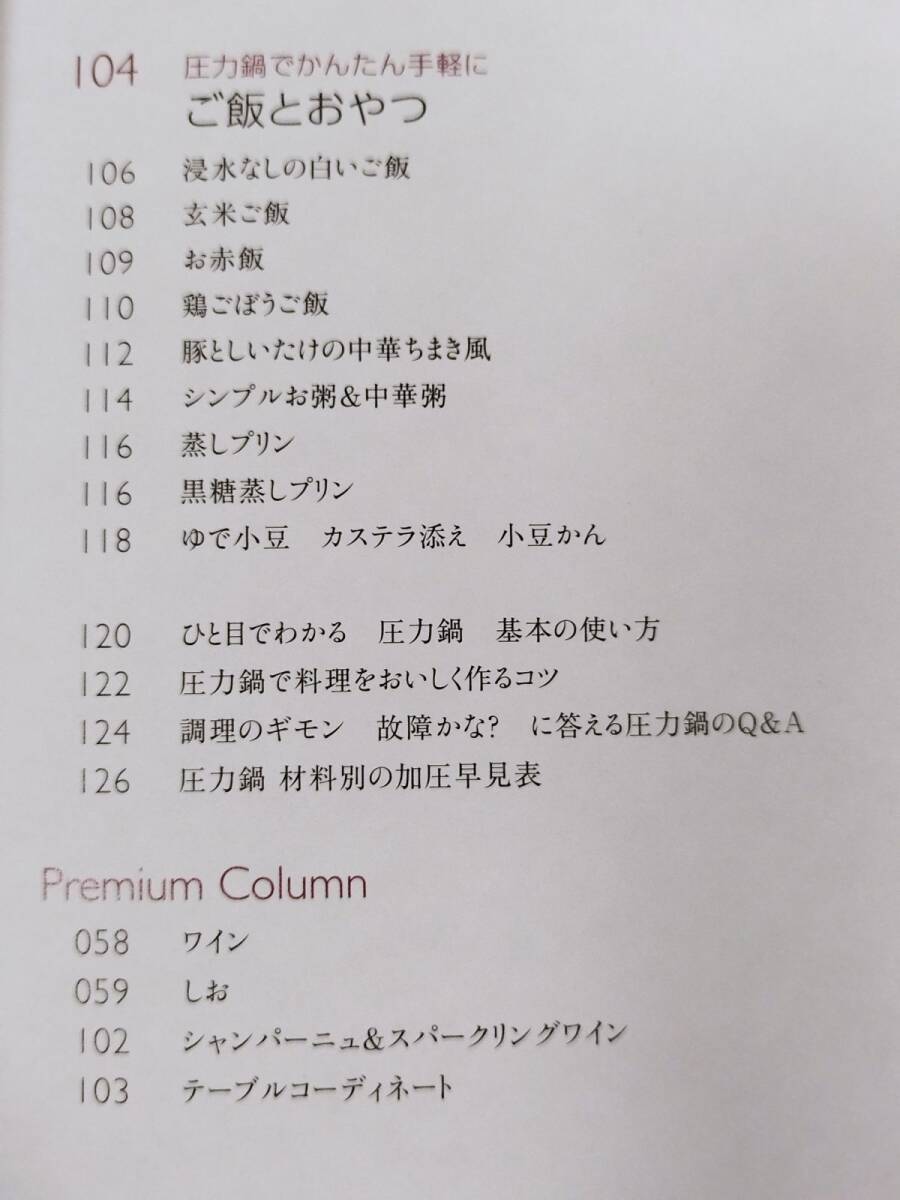 104 圧力鍋でかんたん手軽に
ご飯とおやつ
106 浸水なしの白いご飯
108 玄米ご飯
109 お赤飯
110 鶏ごぼうご飯
112 豚としいたけの中華ちまき風
114 シンプルお粥&中華粥
116 蒸しプリン
116 黒糖蒸しプリン
118 ゆで小豆　カステラ添え　小豆かん
120 ひと目でわかる　圧力鍋　基本の使い方
122 圧力鍋で料理をおいしく作るコツ
124 調理のギモン　故障かな?　に答える圧力鍋のQ&A
126 圧力鍋 材料別の加圧早見表
Premium Column
058 ワイン
059 しお
102 シャンパーニュ&スパークリングワイン
103 テーブルコーディネート